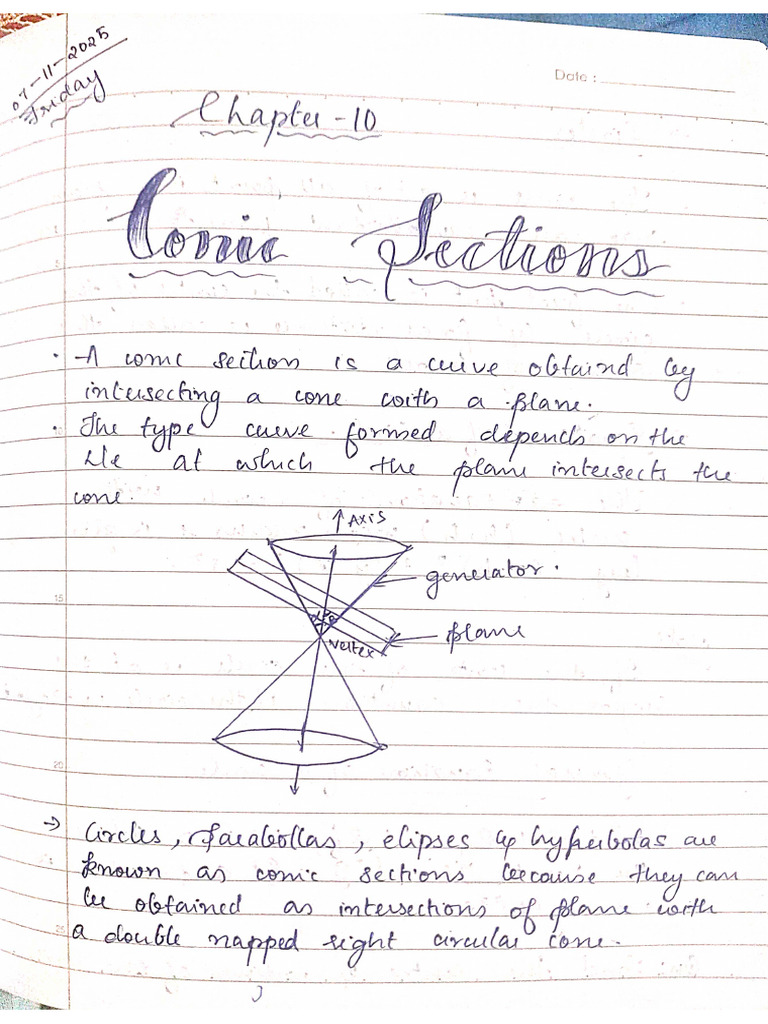 07-11-2025
Friday
Date :
Chapter-10
Conic Sections
· A conic section is a curve obtaind by
intersecting a cone with a plane.
· The type curve formed depends on the
∠le at which the plane intersects the
cone.
↑ Axis
generator.
α β
plane
Vertex
15
20
→ Circles, Parabollas, elipses & hyperbolas are
known as conic sections because they can
be obtained as intersections of plane with
25
a double napped right circular cone.